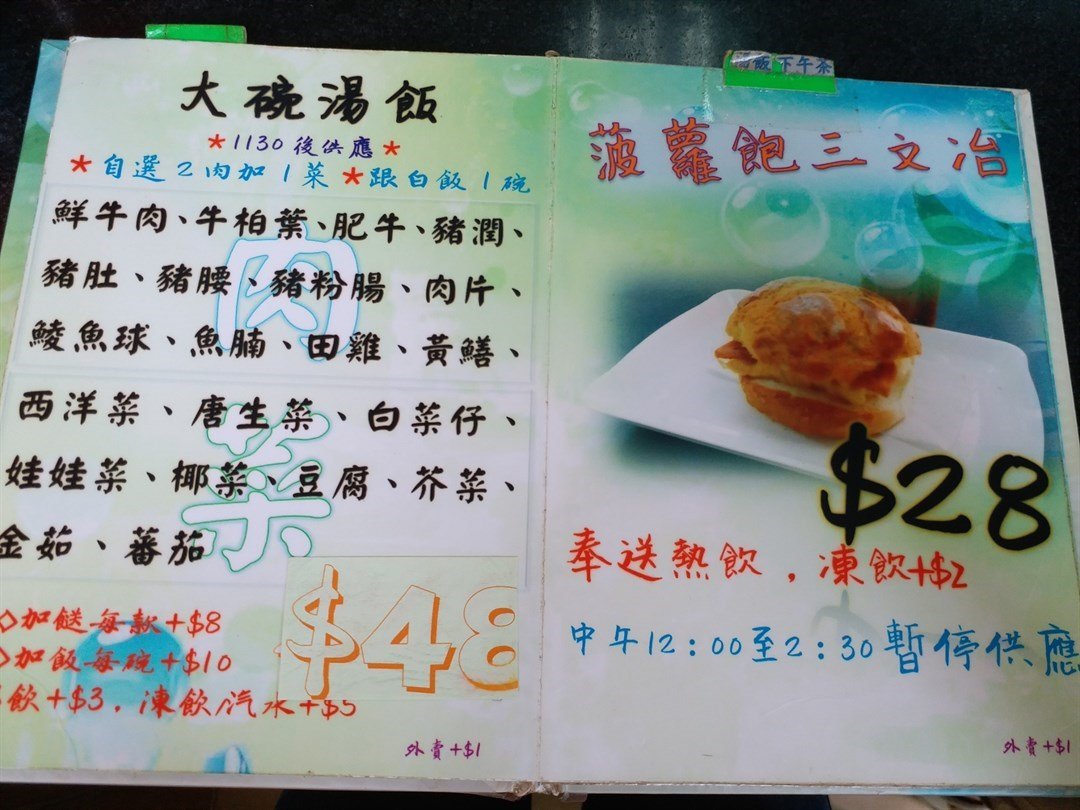 大碗湯飯
*1130後供應*
*自選2肉加1菜*跟白飯1碗
肉
鮮牛肉、牛柏葉、肥牛、豬潤、
豬肚、豬腰、豬粉腸、肉片、
鯪魚球、魚腩、田雞、黃鱔、
菜
西洋菜、唐生菜、白菜仔、
娃娃菜、椰菜、豆腐、芥菜、
金茹、蕃茄
$48
◇加餸每款+$8
◇加飯每碗+$10
飲+$3，凍飲/汽水+$5
外賣+$1
飯下午茶
菠蘿飽三文冶
$28
奉送熱飲，凍飲+$2
中午12:00至2:30暫停供應
外賣+$1